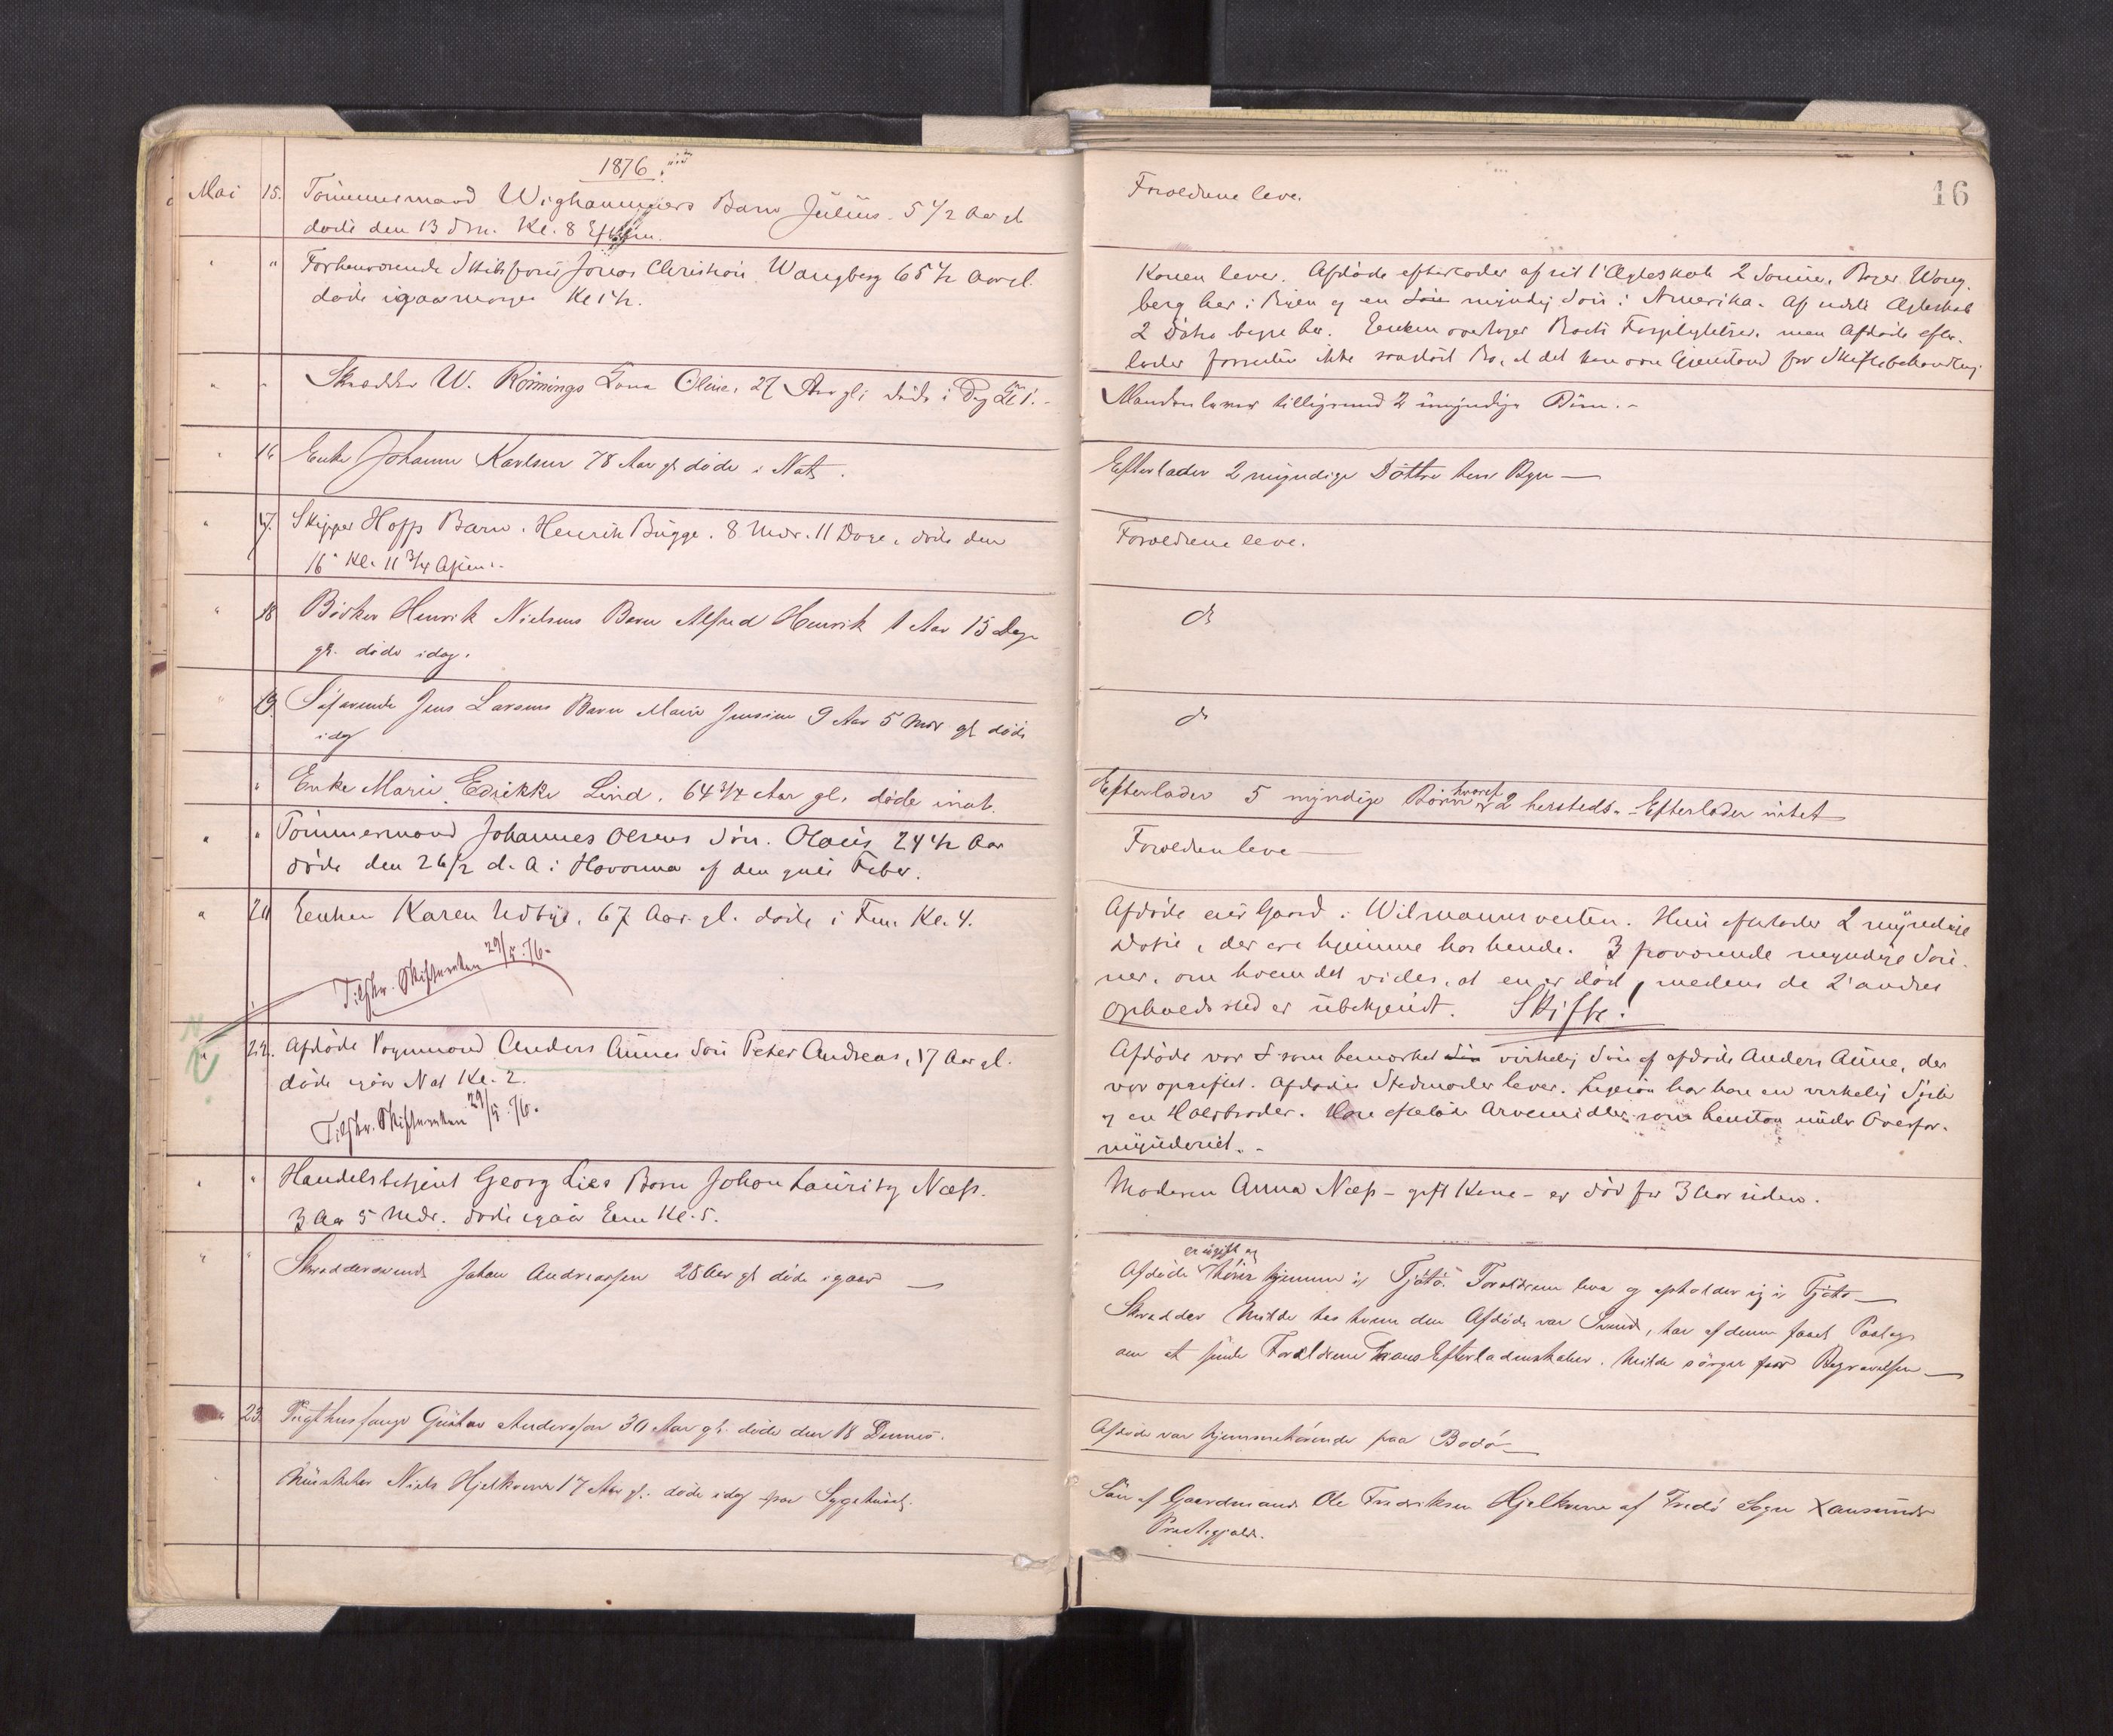 1876.
Mai 15. Tömmermand Wighammers Barn Julius. 5 1/2 Aar gl
døde den 13 dM. Kl. 8 Efterm.
" " Forhenværende Skibsfører Jonas Christian Wangberg 65 1/2 Aar gl.
døde igaar morges Kl 1 1/2.
" " Skrædder W. Rönnings Kone Oline, 27 Aar gl; døde i Dag Kl 1.-
" 16 Enke Johanne Karlsen 78 Aar gl døde i Nat.
" 17. Skipper Hoffs Barn. Henrik Bugge. 8 Mdr. 11 Dage, døde den
16 Kl. 11 3/4 Aften.
" 18 Bödker Henrik Nielsens Barn Alfred Henrik 1 Aar 15 Dage
gl. døde idag.
" 19. Söfarende Jens Larsens Barn Marie Jensine 9 Aar 5 Mdr gl døde
idag
" Enke Marie Edrikke Lind. 64 3/4 Aar gl. døde inat.
" " Tömmermand Johannes Olsens Sön. Olaus 24 1/2 Aar
døde den 26/2 d. A. i Havanna af den gule Feber.
" 20 Enken Karen Udbye, 67 Aar gl. døde i Fm. Kl. 4.
Tilskr. Skifteretten 29/5.76.
" 22. Afdöde Vognmand Anders Aunes Sön Peter Andreas, 17 Aar gl.
døde igaar Nat Kl. 2.
Tilskr. Skifteretten 29/5.76.
" " Handelsbetjent Georg Lies Barn Johan Lauritz Næss.
3 Aar 5 Mdr. døde igaar Em Kl. 5.
" " Skræddersvend Johan Andreassen 28 Aar gl døde igaar
" 23. Tugthusfange Gustav Anderssen 30 Aar gl. döde den 18 Dennes.
Musketer Niels Hjelkrem 17 Aar gl. döde idag paa Sygehuset.
16
Forældrene leve.
Konen lever. Afdøde efterlader af sit 1' Ægteskab 2 Sönner, Bager Wang-
berg her i Byen og en myndig Sön i Amerika. Af sidste Ægteskab
2 Døtre begge her. Enken overtager Boets Forpligtelser, men Afdøde efter-
lader forresten ikke saa stort Bo, at det kan være Gjenstand for Skiftebehandling
Manden lever tilligemed 2 umyndige Börn.-
Efterlader 2 myndige Döttre her i Byen
Forældrene leve.
do
do
Efterlader 5 myndige Börn hvoraf 2 hersteds. - Efterlader intet
Forældrene leve
Afdøde eier Gaard i Wilmannsveiten. Hun efterlader 2 myndige
Døtre, der ere hjemme hos hende. 3 fraværende myndige Søn-
ner, om hvem det vides, at en er død, medens de 2 andres
Opholdssted er ubekjendt. Skifte!
Afdøde var som bemærket virkelig Sön af afdøde Anders Aune, der
var opgiftet. Afdødes Stedmoder lever. Ligesaa har han en virkelig Syster
og en Halvbroder. Han efterlod Arvemidler som henstaa under Overfor-
mynderiet.-
Moderen Anna Næss - gift Kone - er død for 3 Aar siden.
Afdøde er ugift og hörer hjemme i Tjötö. Forældrene leve og opholder sig i Tjötö
Skrædder Milde hos hvem den Afdøde var Svend, har af denne faaet Paalæg
om at sende Forældrene hans Efterladenskaber. Milde sörger for Begravelsen
Afdøde var hjemmehörende paa Bodö
Sön af Gaardmand Ole Fredriksen Hjelkrem af Fredö Sogn Xansunds
Præstegjæld.